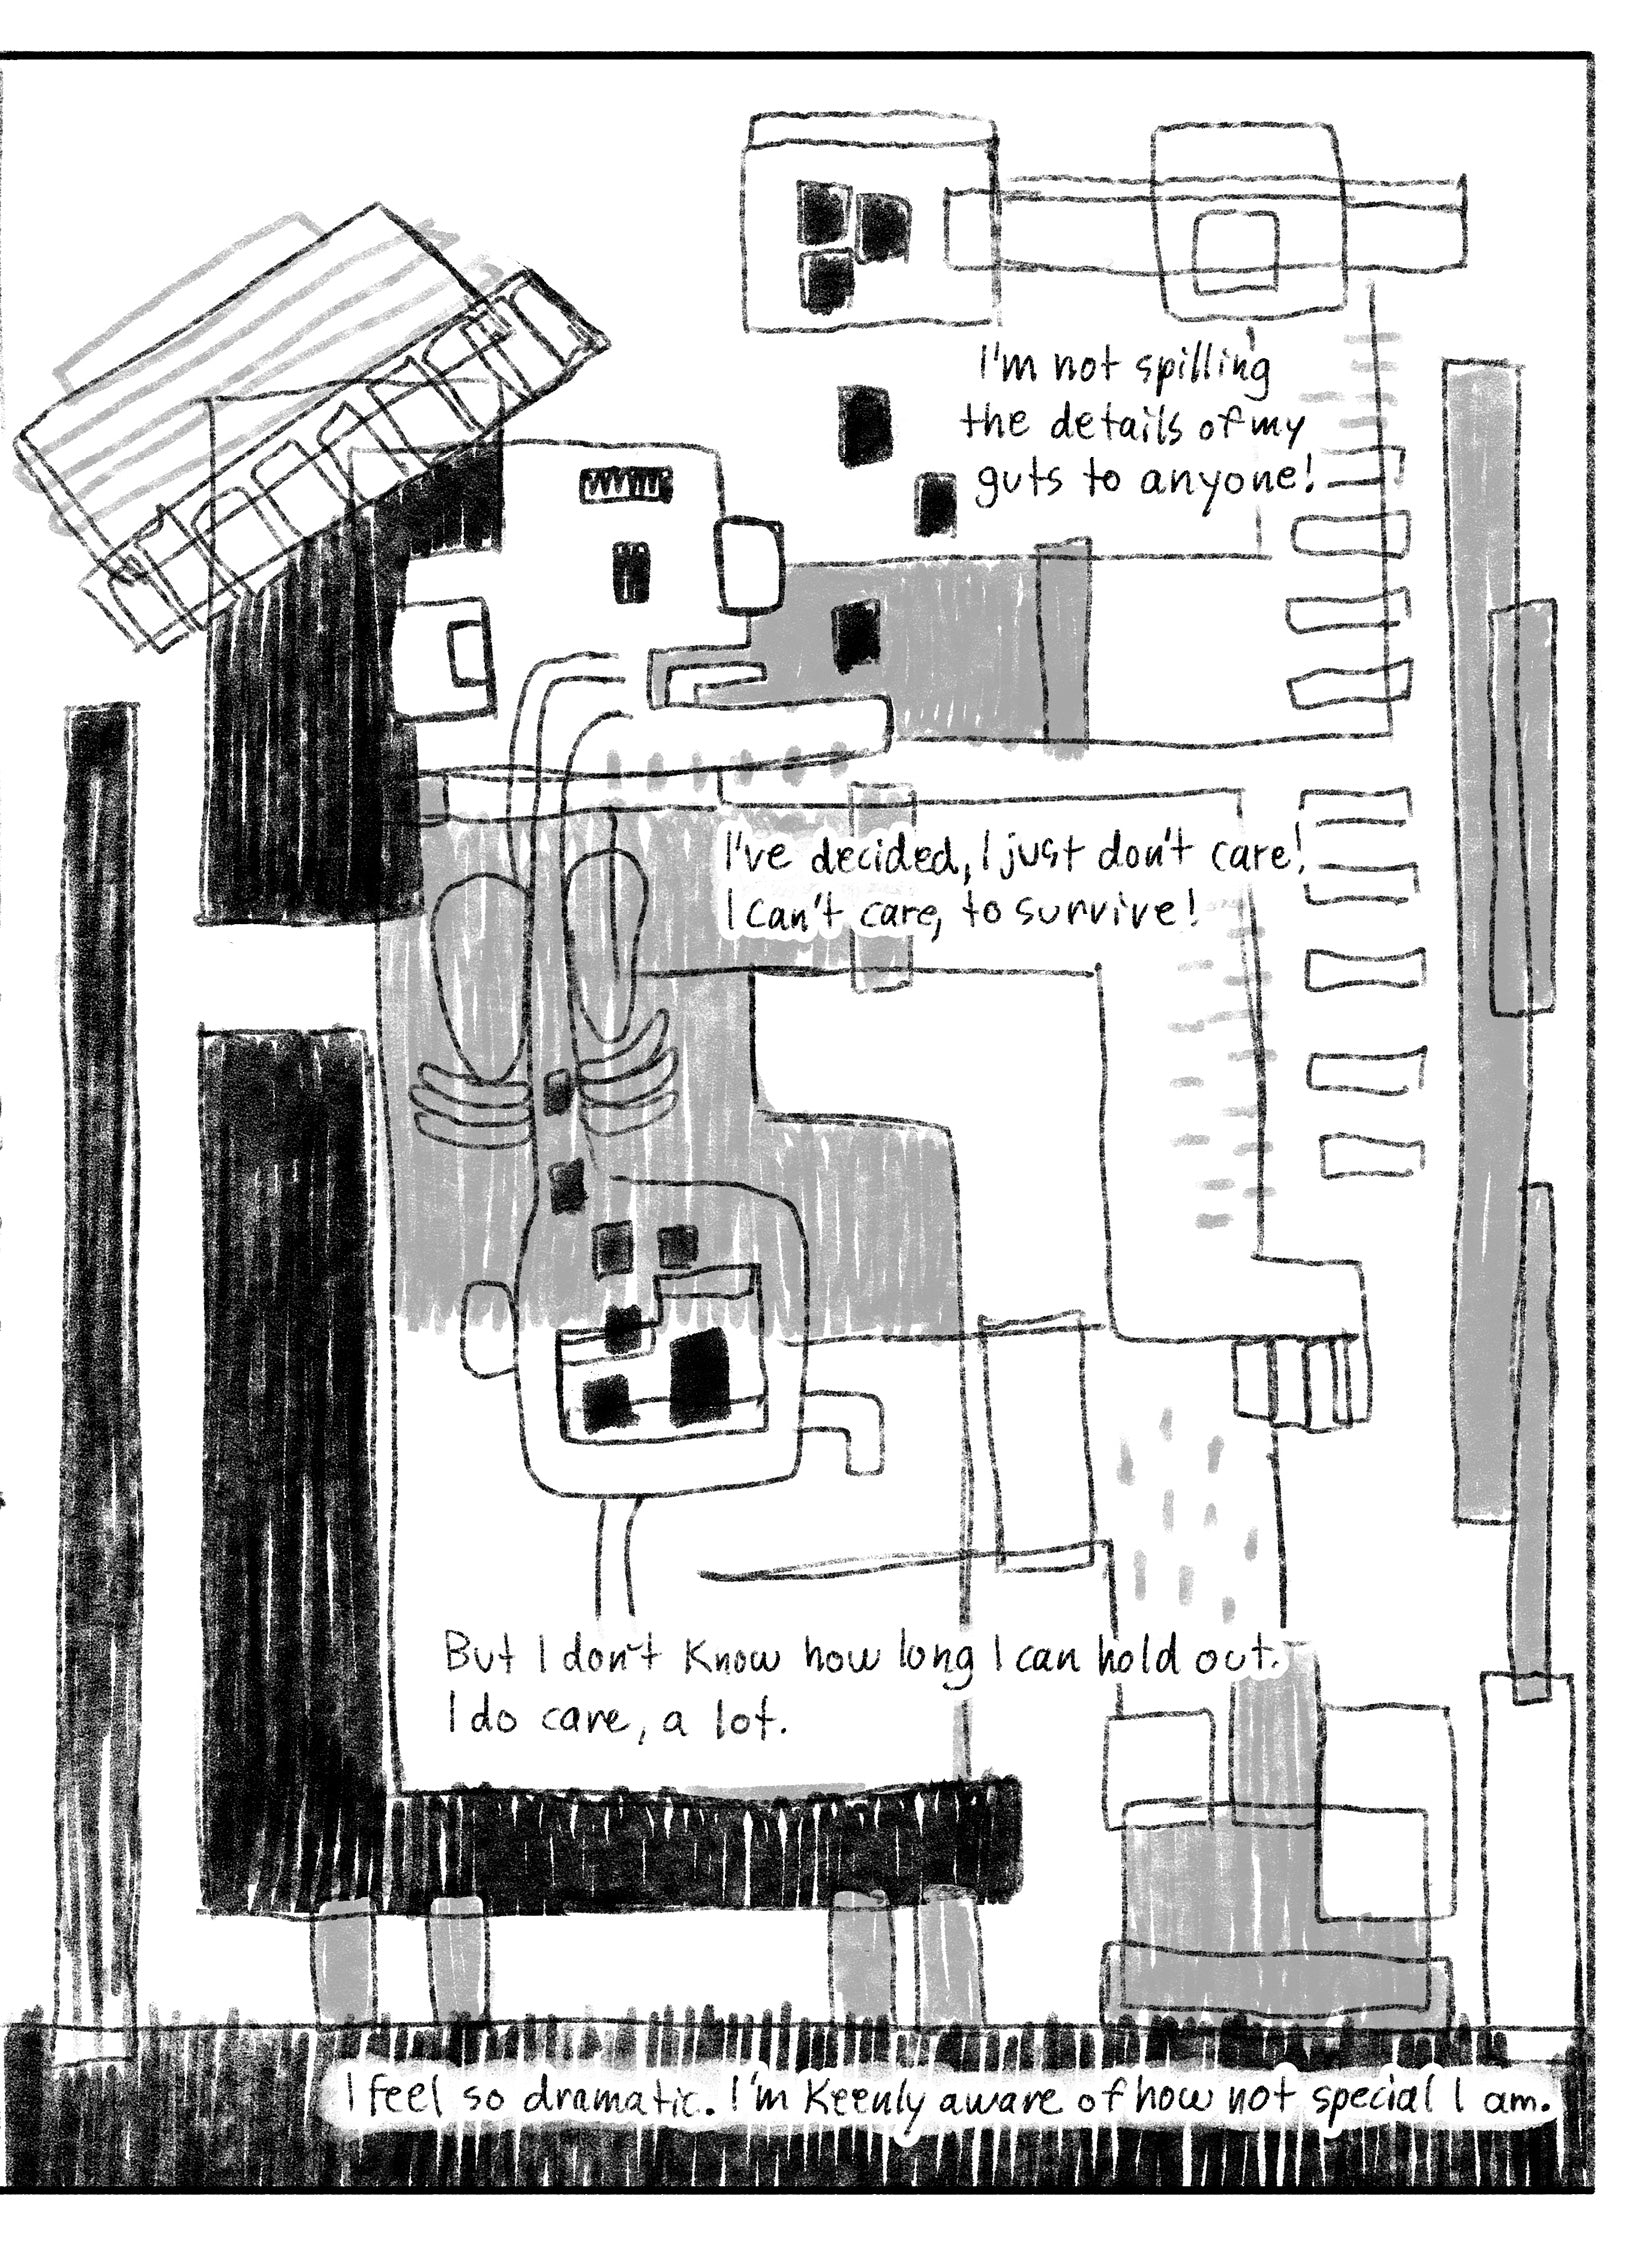 I'm not spilling
the details of my
guts to anyone!
I've decided, I just don't care!
I can't care, to survive!
But I don't know how long I can hold out.
I do care, a lot.
I feel so dramatic. I'm keenly aware of how not special I am.